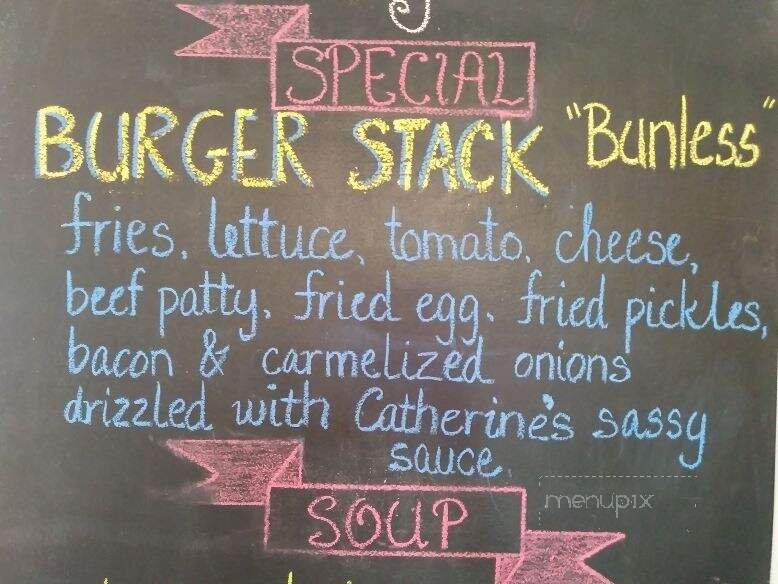 SPECIAL
BURGER STACK "Bunless"
fries, lettuce, tomato, cheese,
beef patty, fried egg, fried pickles,
bacon & carmelized onions
drizzled with Catherine's sassy
sauce.
SOUP
menupix